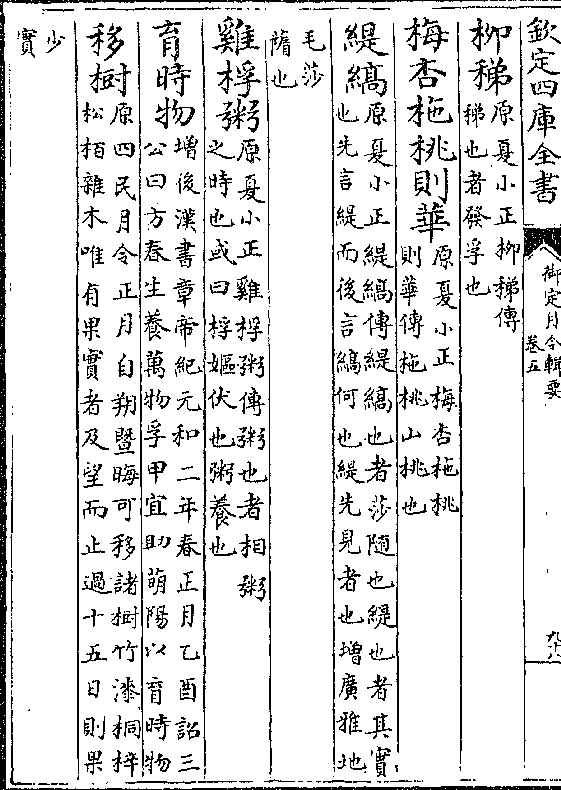 欽定四庫全書
御定月令輯要
卷五
九十八
柳稊原夏小正柳稊傳
稊也者發孚也
梅杏杝桃則華原夏小正梅杏杝桃
則華傳杝桃山桃也
緹縞原夏小正緹縞傳緹縞也者莎隨也緹也者其實
也先言緹而後言縞何也緹先見者也增廣雅地
毛莎
蓨也
雞桴粥原夏小正雞桴粥傳粥也者相粥
之時也或曰桴嫗伏也粥養也
育時物增後漢書章帝紀元和二年春正月乙酉詔三
公曰方春生養萬物孚甲宜助萌陽以育時物
移樹原四民月令正月自朔暨晦可移諸樹竹漆桐梓
松栢雜木唯有果實者及望而止過十五日則果
少
實